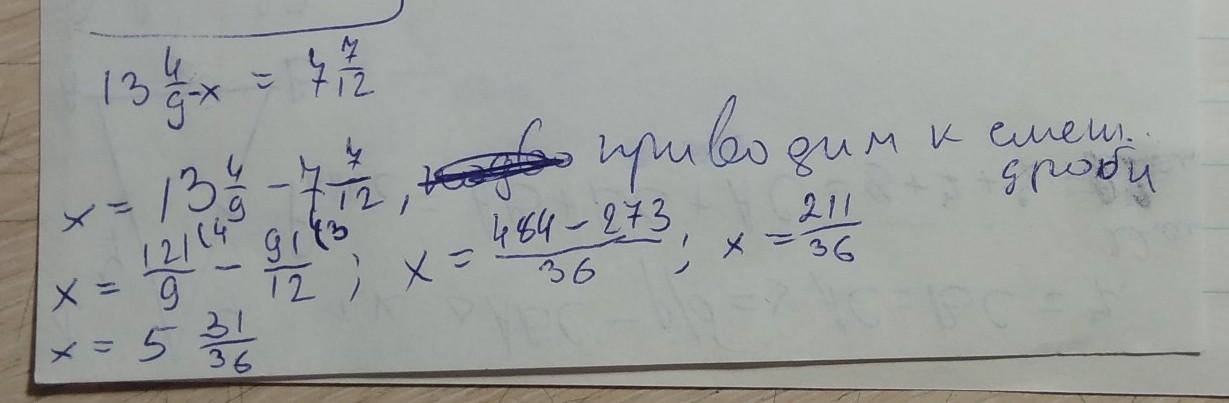 13 4/9 - x = 7 7/12
x = 13 4/9 - 7 7/12, приводим к смеш.
дроби
x = 121/9 (4 - 91/12 (3 ; x = 484 - 273/36 ; x = 211/36
x = 5 31/36